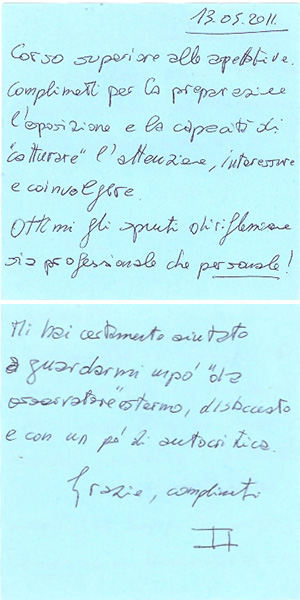 13.05.2011.
Corso superiore alle aspettative.
Complimenti per la preparazione
l'esposizione e la capacità di
"catturare" l'attenzione, interessare
e coinvolgere.
Ottimi gli spunti di riflessione
sia professionale che personale!
Mi hai certamente aiutato
a guardarmi un po' "da
osservatore" esterno, distaccato
e con un pó di autocritica.
Grazie, complimenti